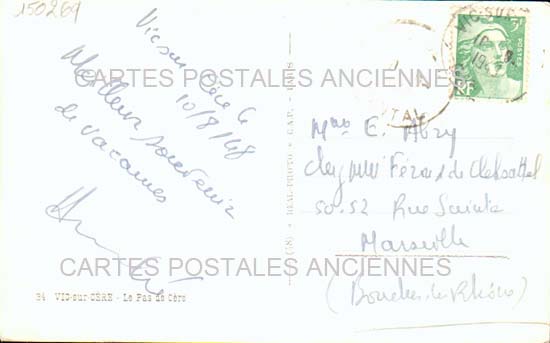 150269
Vic sur Cère le
10/8/48
Meilleur souvenir
de vacances
CARTES POSTALES ANCIENNES
34 VIC-sur-CÈRE - Le Pas de Cère
REAL-PHOTO
C.A.P. - PARIS
VIC-SUR
POSTES
RF
TAL
Mme E. Abry
chez Mr Férand de
50-52 Rue Sainte
Marseille
(Bouches-du-Rhône)
CARTES POSTALES ANCIENNES